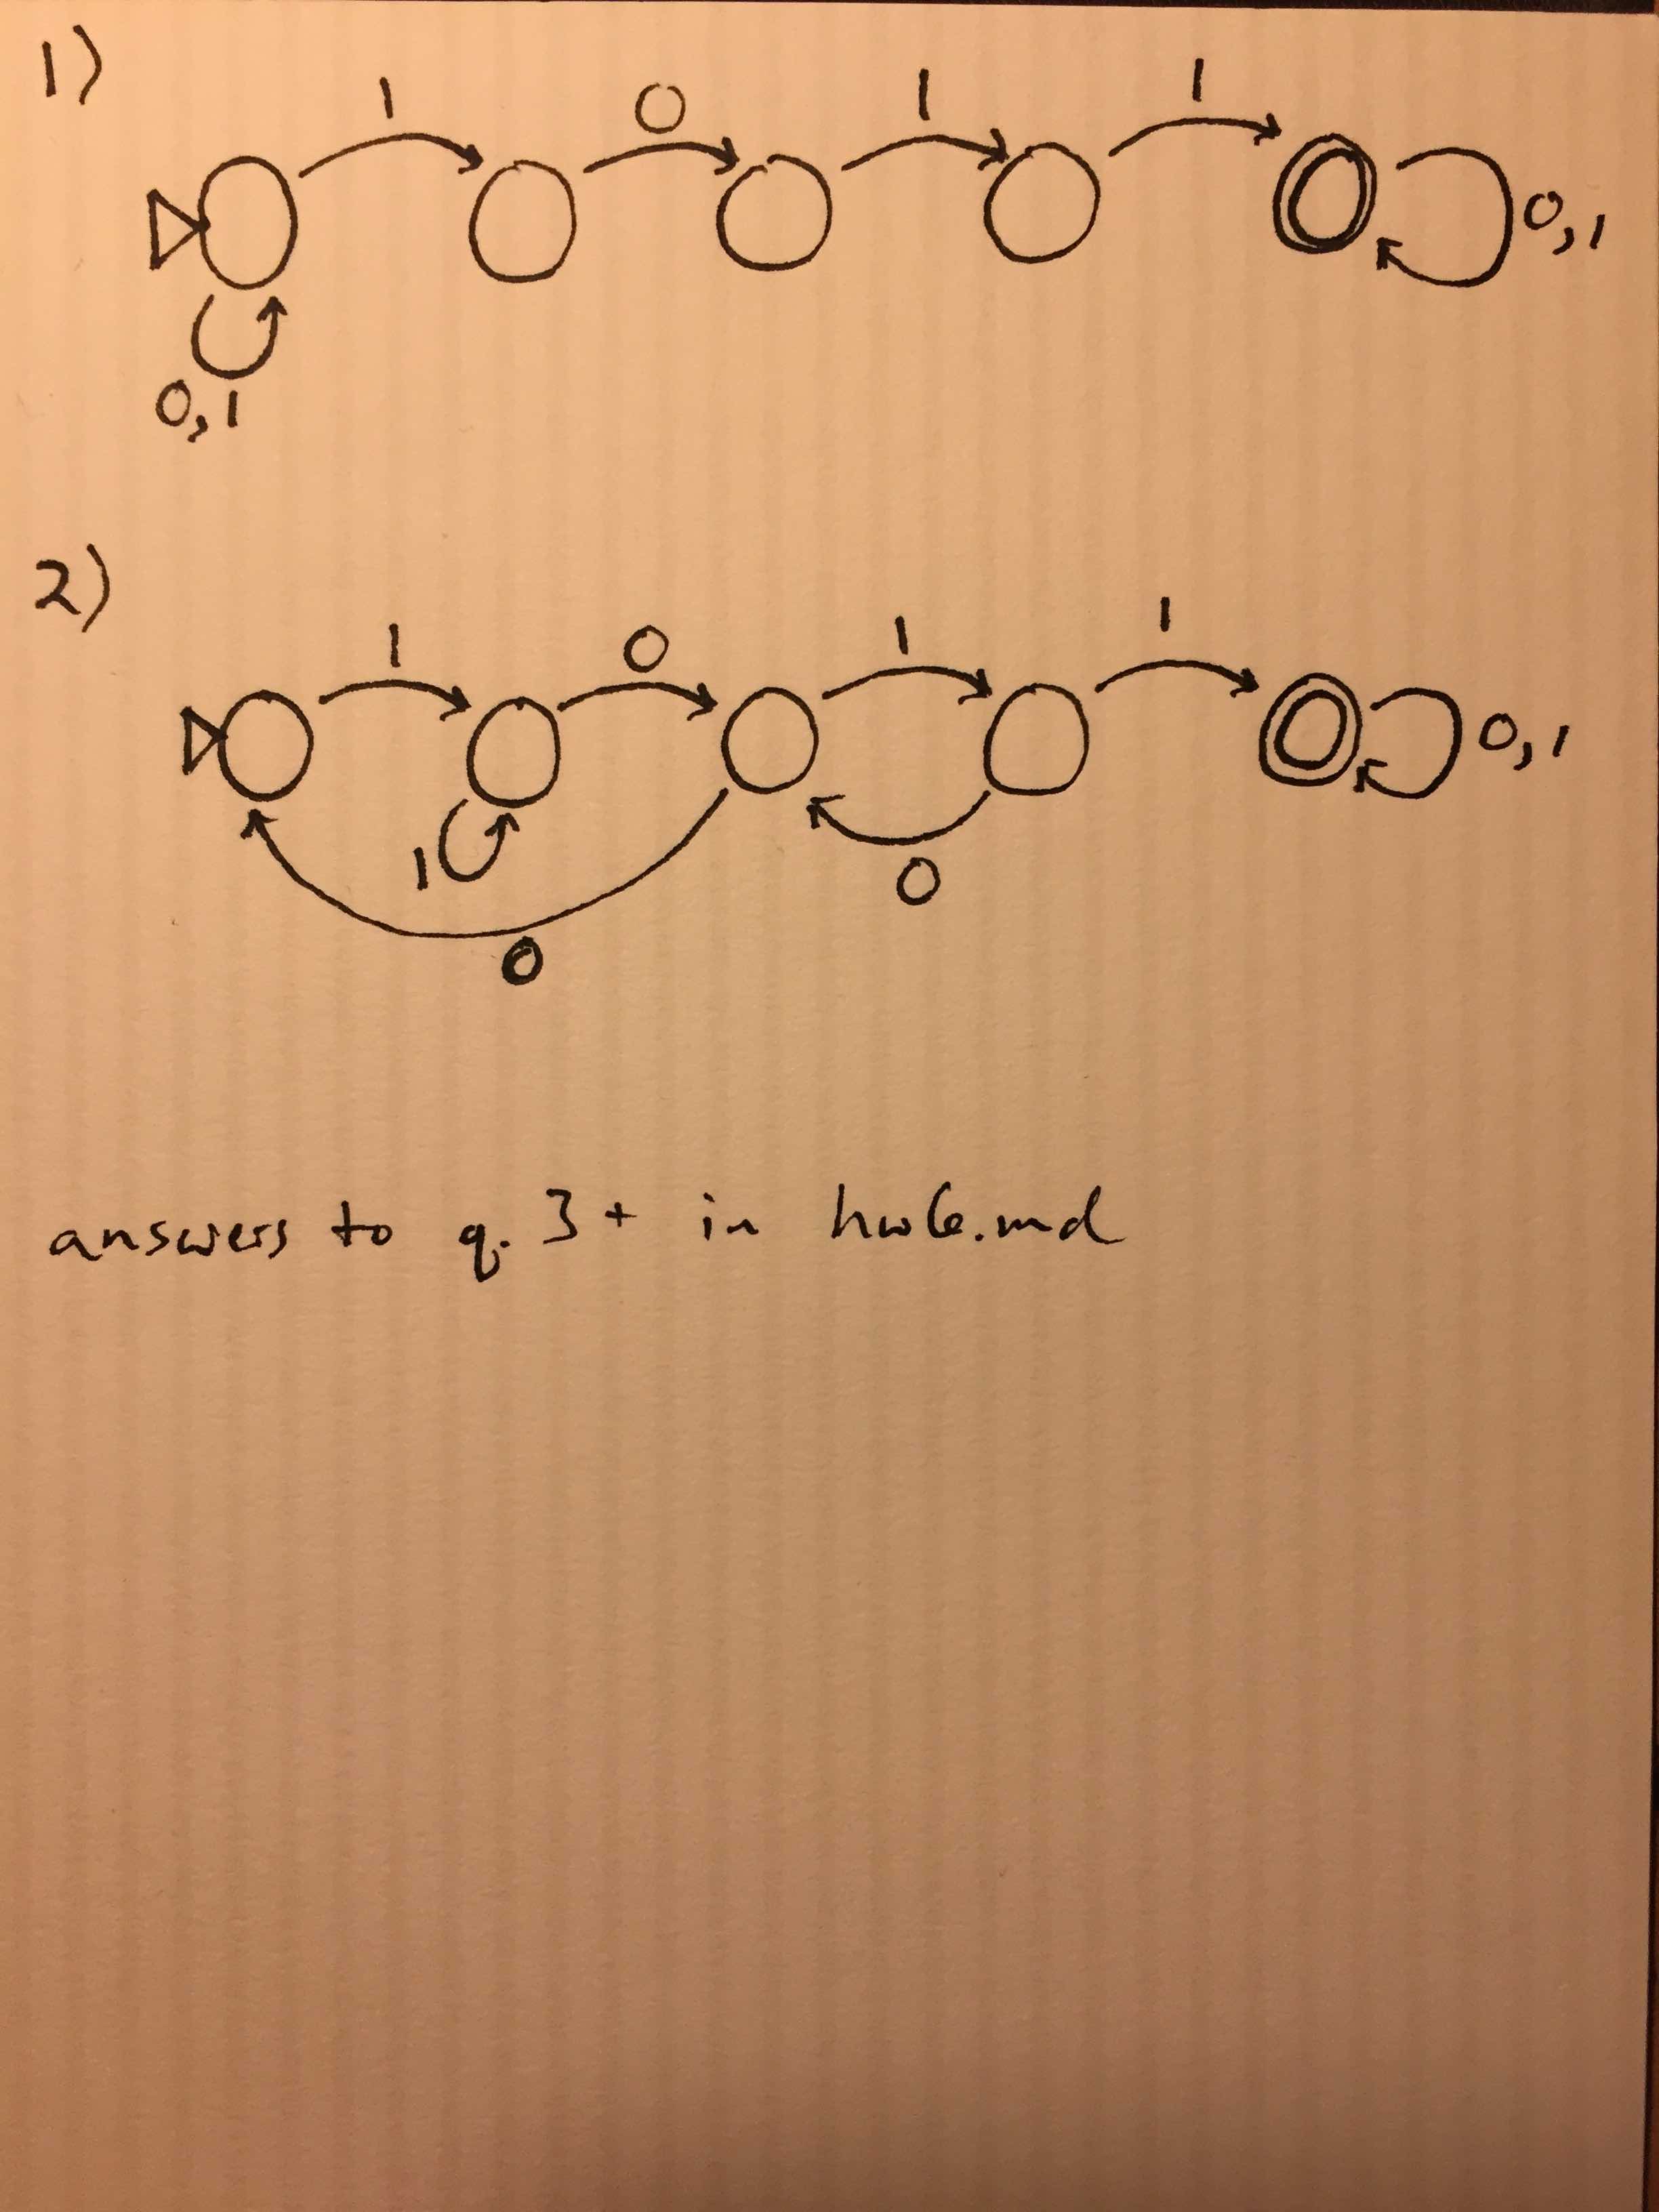 1)
1 0 1 1
0,1
0,1
2)
1 0 1 1
0,1
1
0
0
answers to q. 3+ in hw6.md